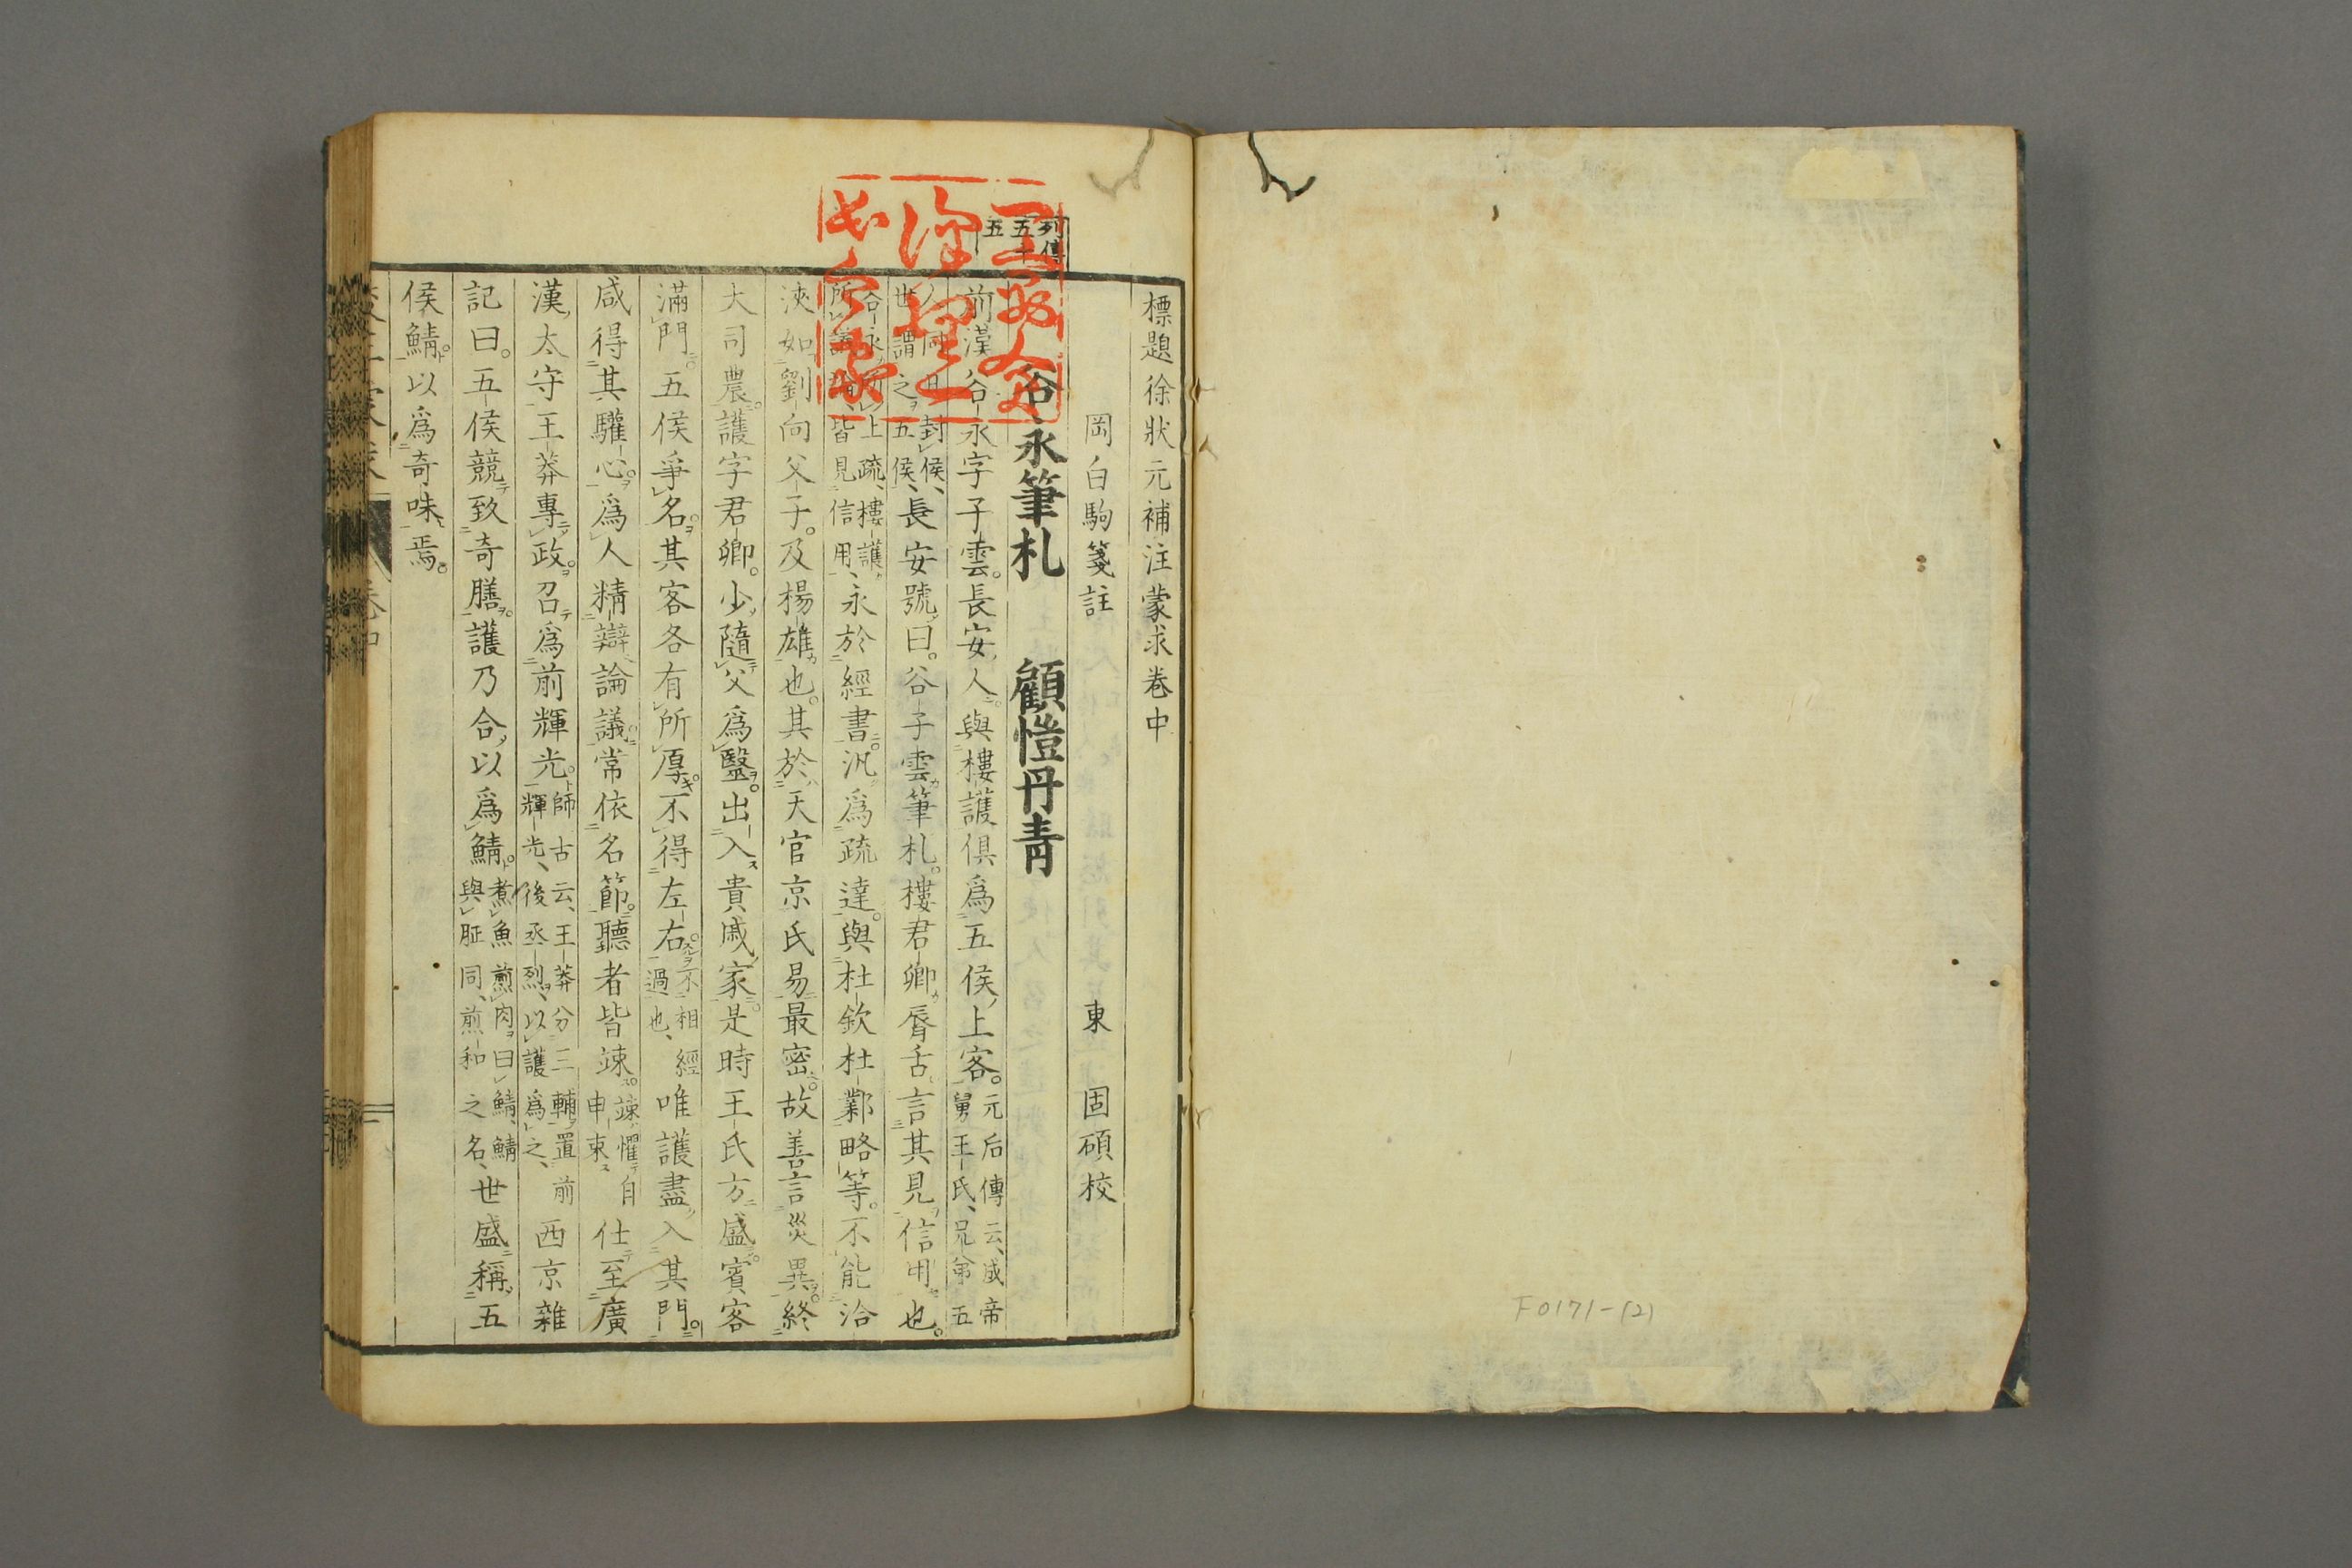 標題徐狀元補注蒙求卷中
岡白駒箋註　東　固碩校
列傳
五十
五
谷永筆札　顧愷丹青
前漢谷永字子雲。長安人。與樓護俱爲五侯上客。元后傳云、成帝舅王氏、兄弟五
人同日封侯、世謂之五侯、長安號曰。谷子雲筆札。樓君卿脣舌言其見信用也。
谷永所上疏、樓護所議論、皆見信用、永於經書。汎爲疏達。與杜欽杜鄴略等。不能洽
浹如劉向父子。及楊雄也。其於天官京氏易最密。故善言災異。終
大司農。護字君卿。少隨父爲醫。出入貴戚家。是時王氏方盛。賓客
滿門。五侯爭名。其客各有所厚。不得左右。不相經過也、唯護盡入其門。
咸得其驩心。爲人精辯論議常依名節。聽者皆竦。竦懼自申束仕至廣
漢太守王莽專政。召爲前輝光。師古云、王莽分三輔置前輝光、後丞烈、以護爲之、西京雜
記曰。五侯競致奇膳。護乃合以爲鯖。煮魚煎肉曰鯖、鯖與䏰同、煎和之名、世盛稱五
侯鯖。以爲奇味焉。
卷中
F0171-(2)